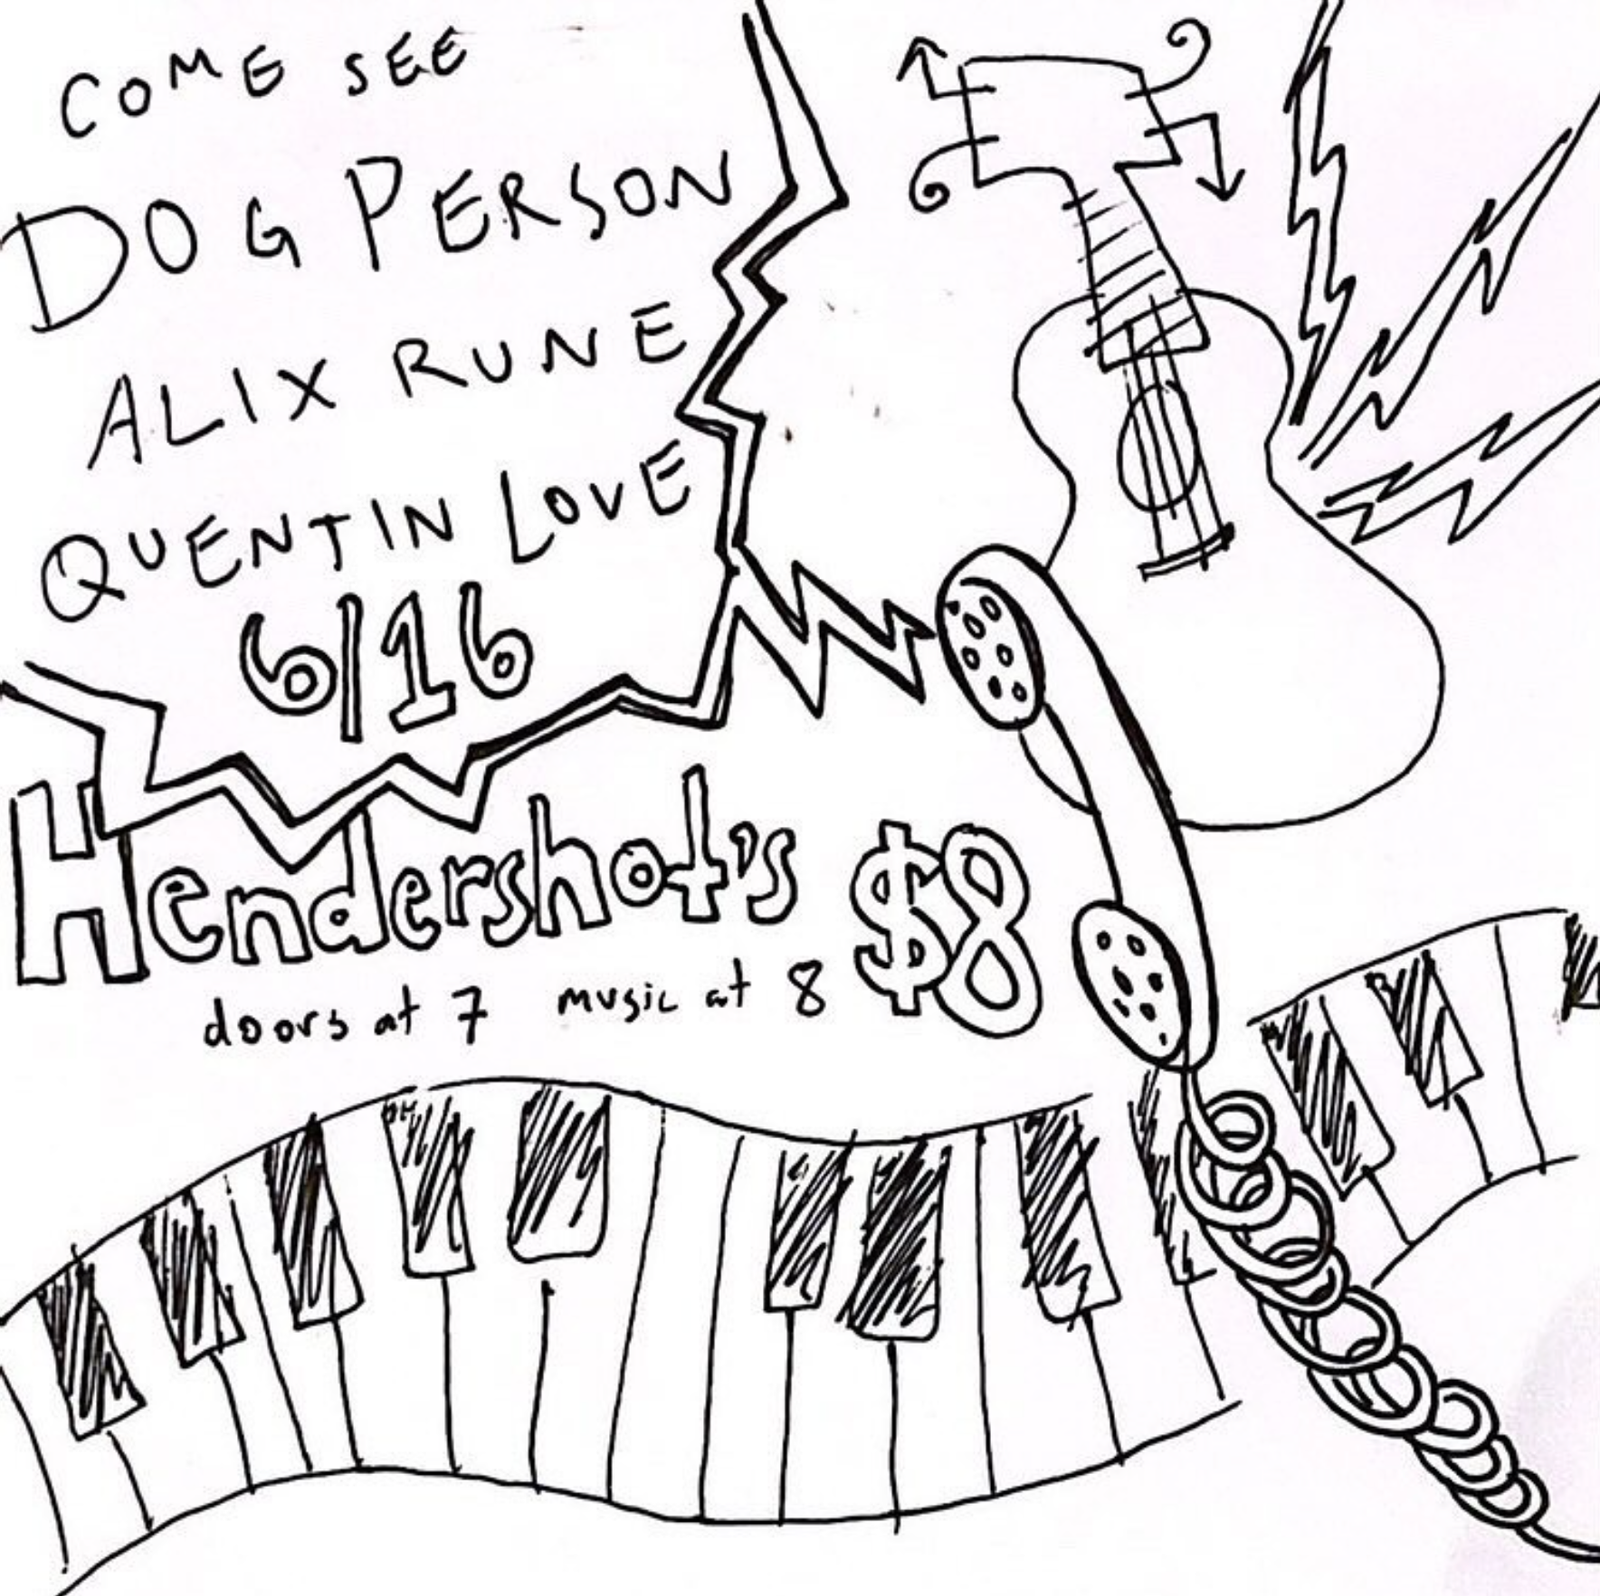 COME SEE
DOG PERSON
ALIX RUNE
QUENTIN LOVE
6/16
Hendershot's $8
doors at 7 music at 8